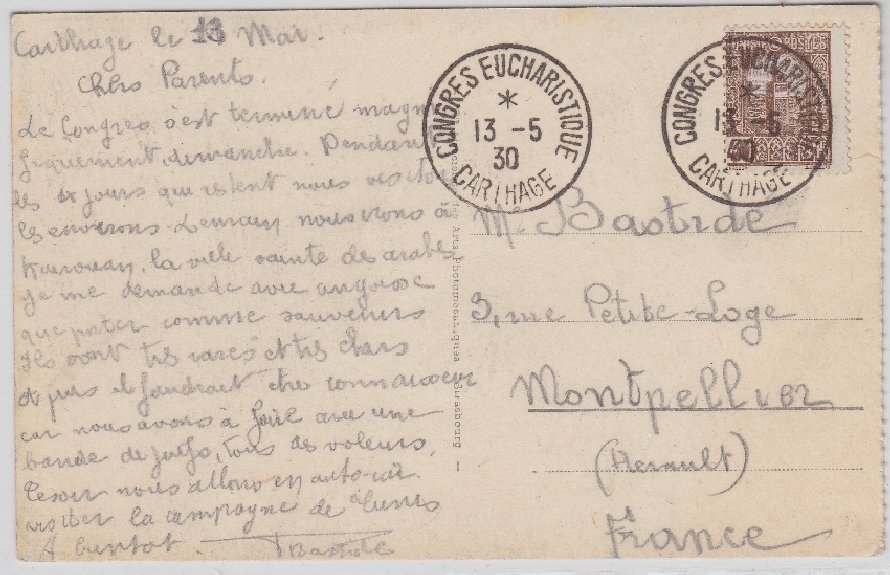 Carthage le 13 Mai.
Chers Parents.
Le Congres s'est terminé magni
fiquement, dimanche. Pendant
les 4 jours qui restent nous visitons
les environs. Demain nous irons à
Kairouan, la ville sainte des arabes
Je me demande avec angoisse
que porter comme souvenirs
Ils sont tres rares et tres chers
et puis il faudrait etre connaisseur
car nous avons à faire avec une
bande de juifs, tous des voleurs.
Ce soir nous allons en auto-car
visiter la campagne de Tunis
A bientot. Bastide
CONGRES EUCHARISTIQUE
*
13 -5
30
CARTHAGE
CONGRES EUCHARISTIQUE
*
13 -5
30
CARTHAGE
POSTES
M. Bastide
3, rue Petite-Loge
Montpellier
(Herault)
France
Arts Photomécaniques Strasbourg —